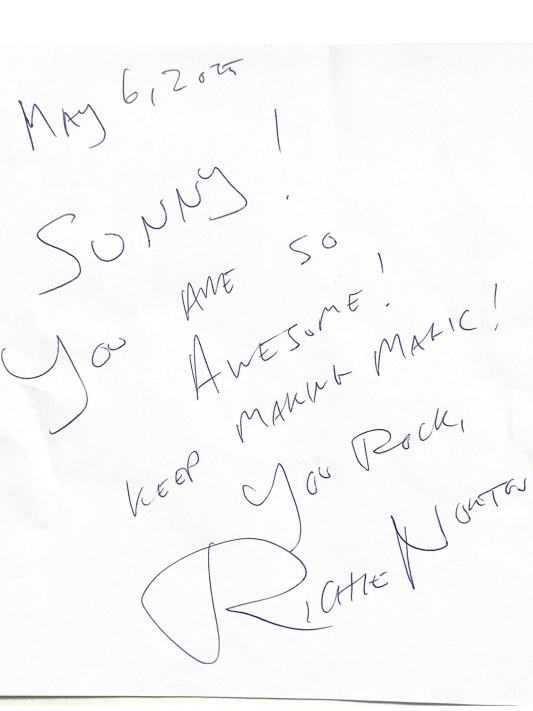 May 6, 2025
SONNY!
You ARE SO
AWESOME!
KEEP MAKING MAGIC!
You Rock,
RICHIE NORTON